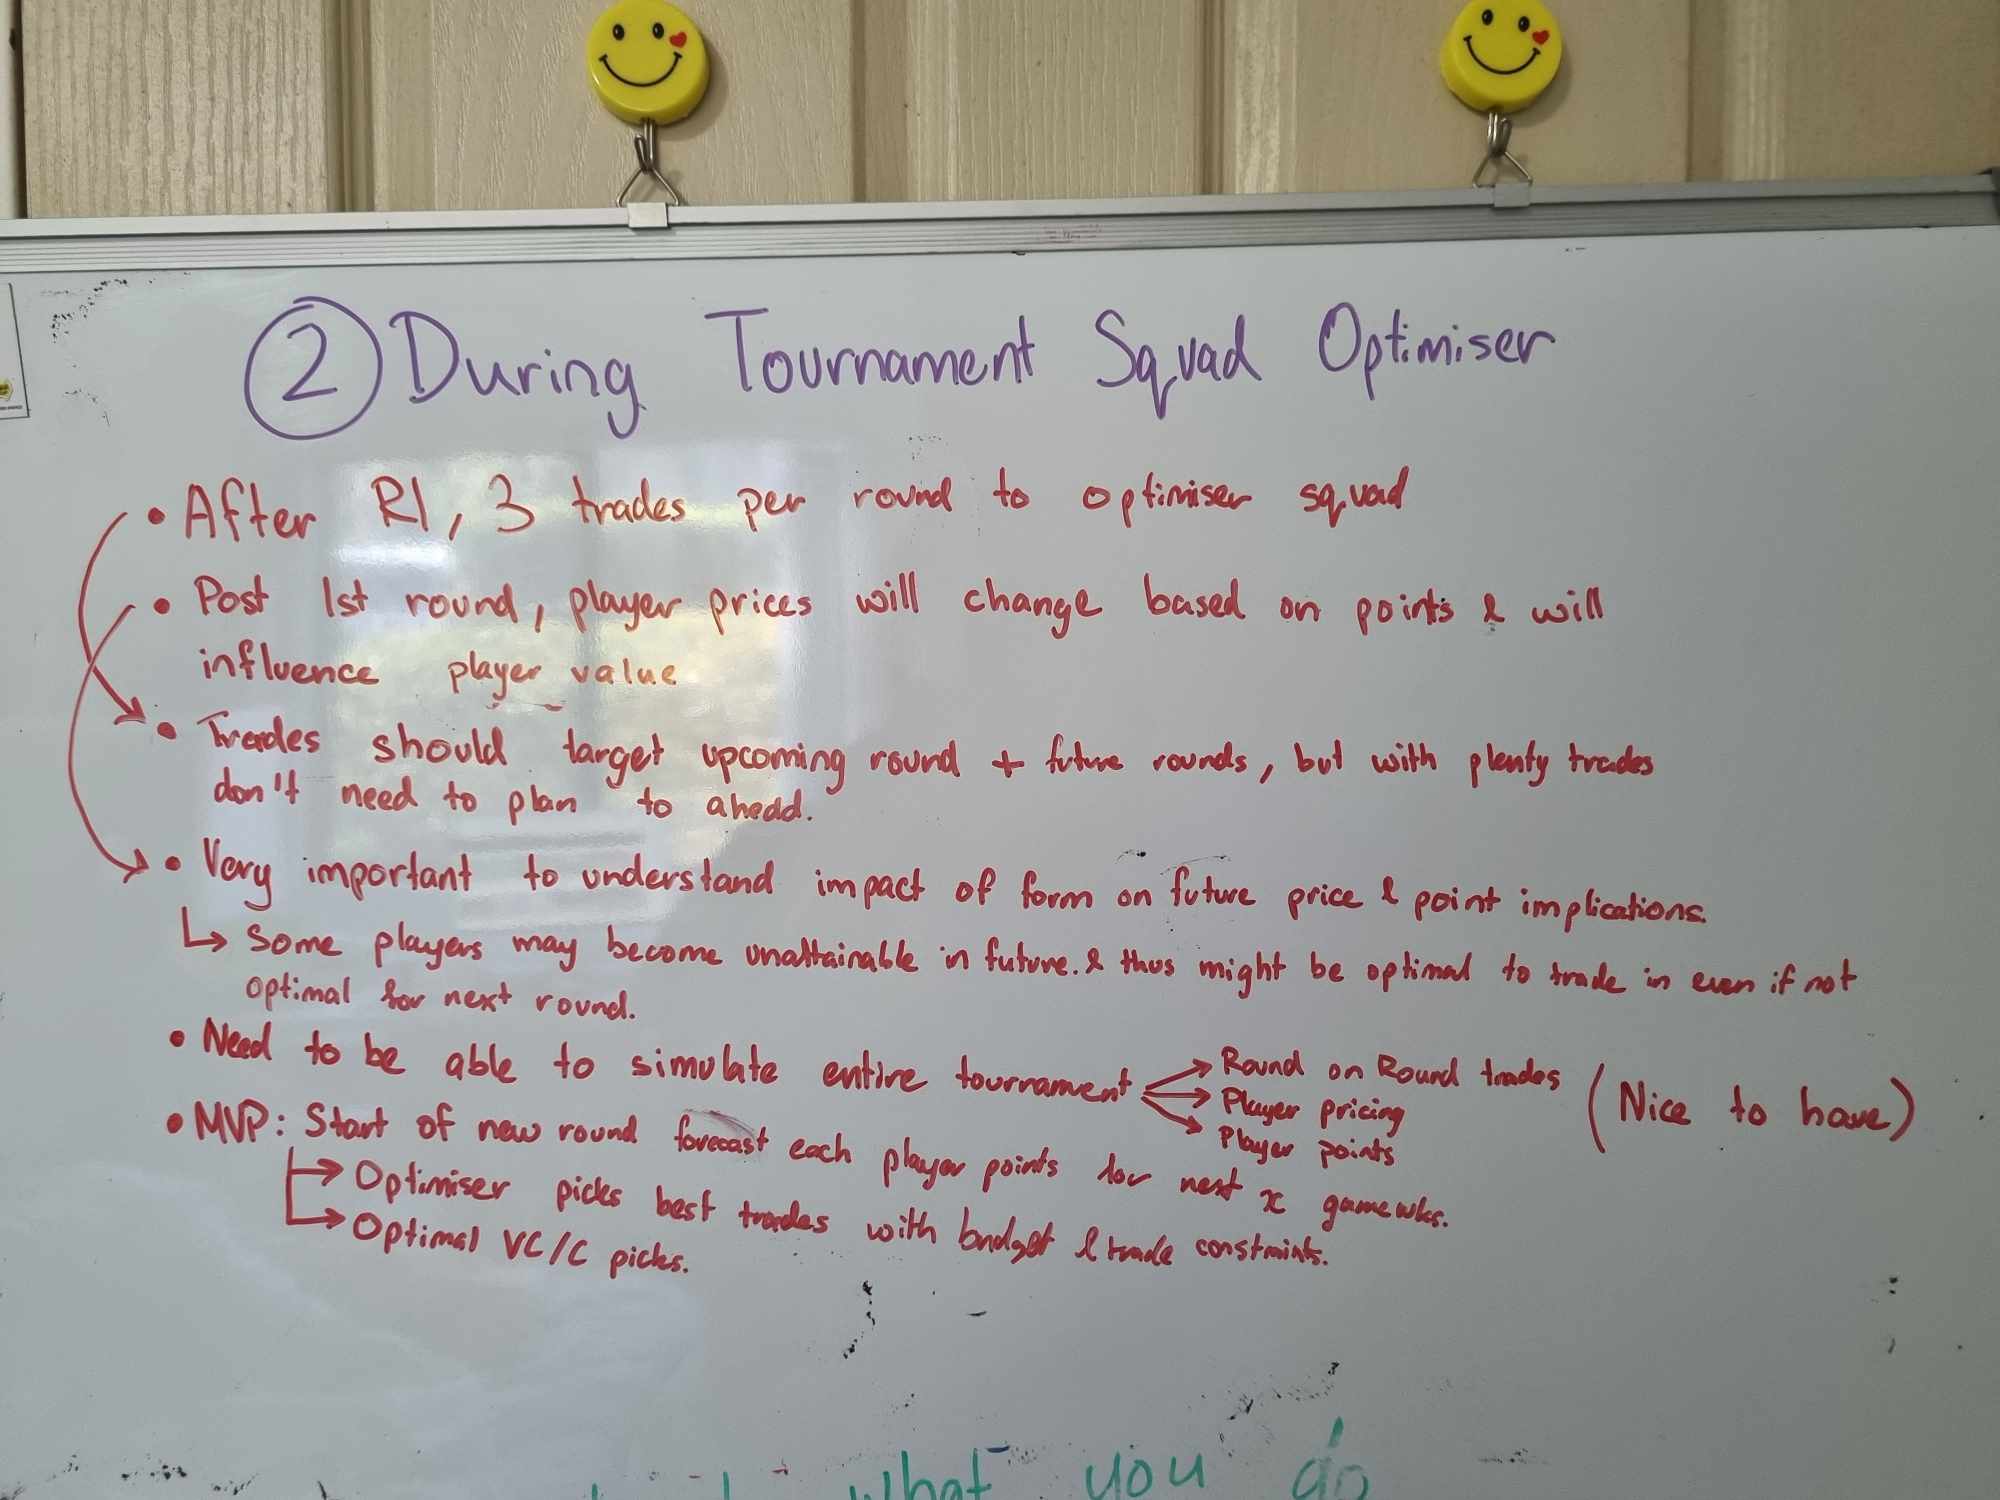 ② During Tournament Squad Optimiser
• After R1, 3 trades per round to optimiser squad
• Post 1st round, player prices will change based on points & will
influence player value
• Trades should target upcoming round + future rounds, but with plenty trades
don't need to plan to ahead.
• Very important to understand impact of form on future price & point implications.
↳ Some players may become unattainable in future. & thus might be optimal to trade in even if not
optimal for next round.
• Need to be able to simulate entire tournament → Round on Round trades
→ Player pricing
→ Player points
(Nice to have)
• MVP: Start of new round forecast each player points for next x gamewks.
→ Optimiser picks best trades with budget & trade constraints.
→ Optimal VC/C picks.
what you do